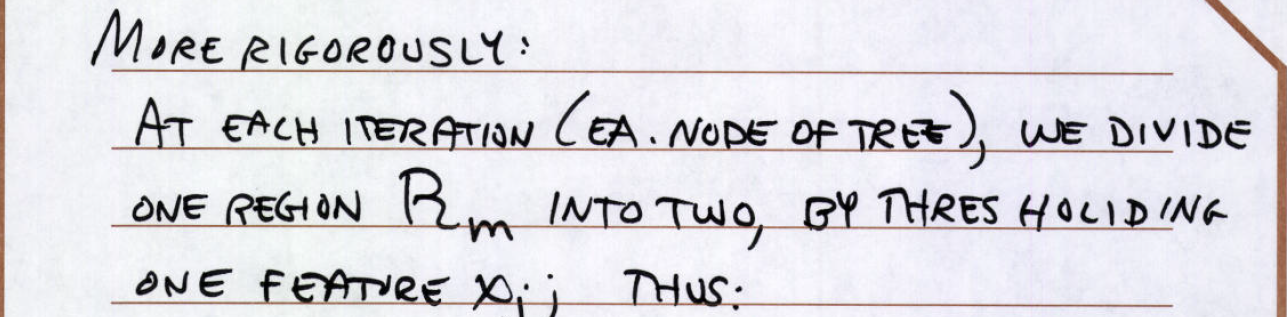 MORE RIGOROUSLY:
AT EACH ITERATION (EA. NODE OF TREE), WE DIVIDE
ONE REGION Rₘ INTO TWO, BY THRES HOLIDING
ONE FEATURE xᵢ; THUS: